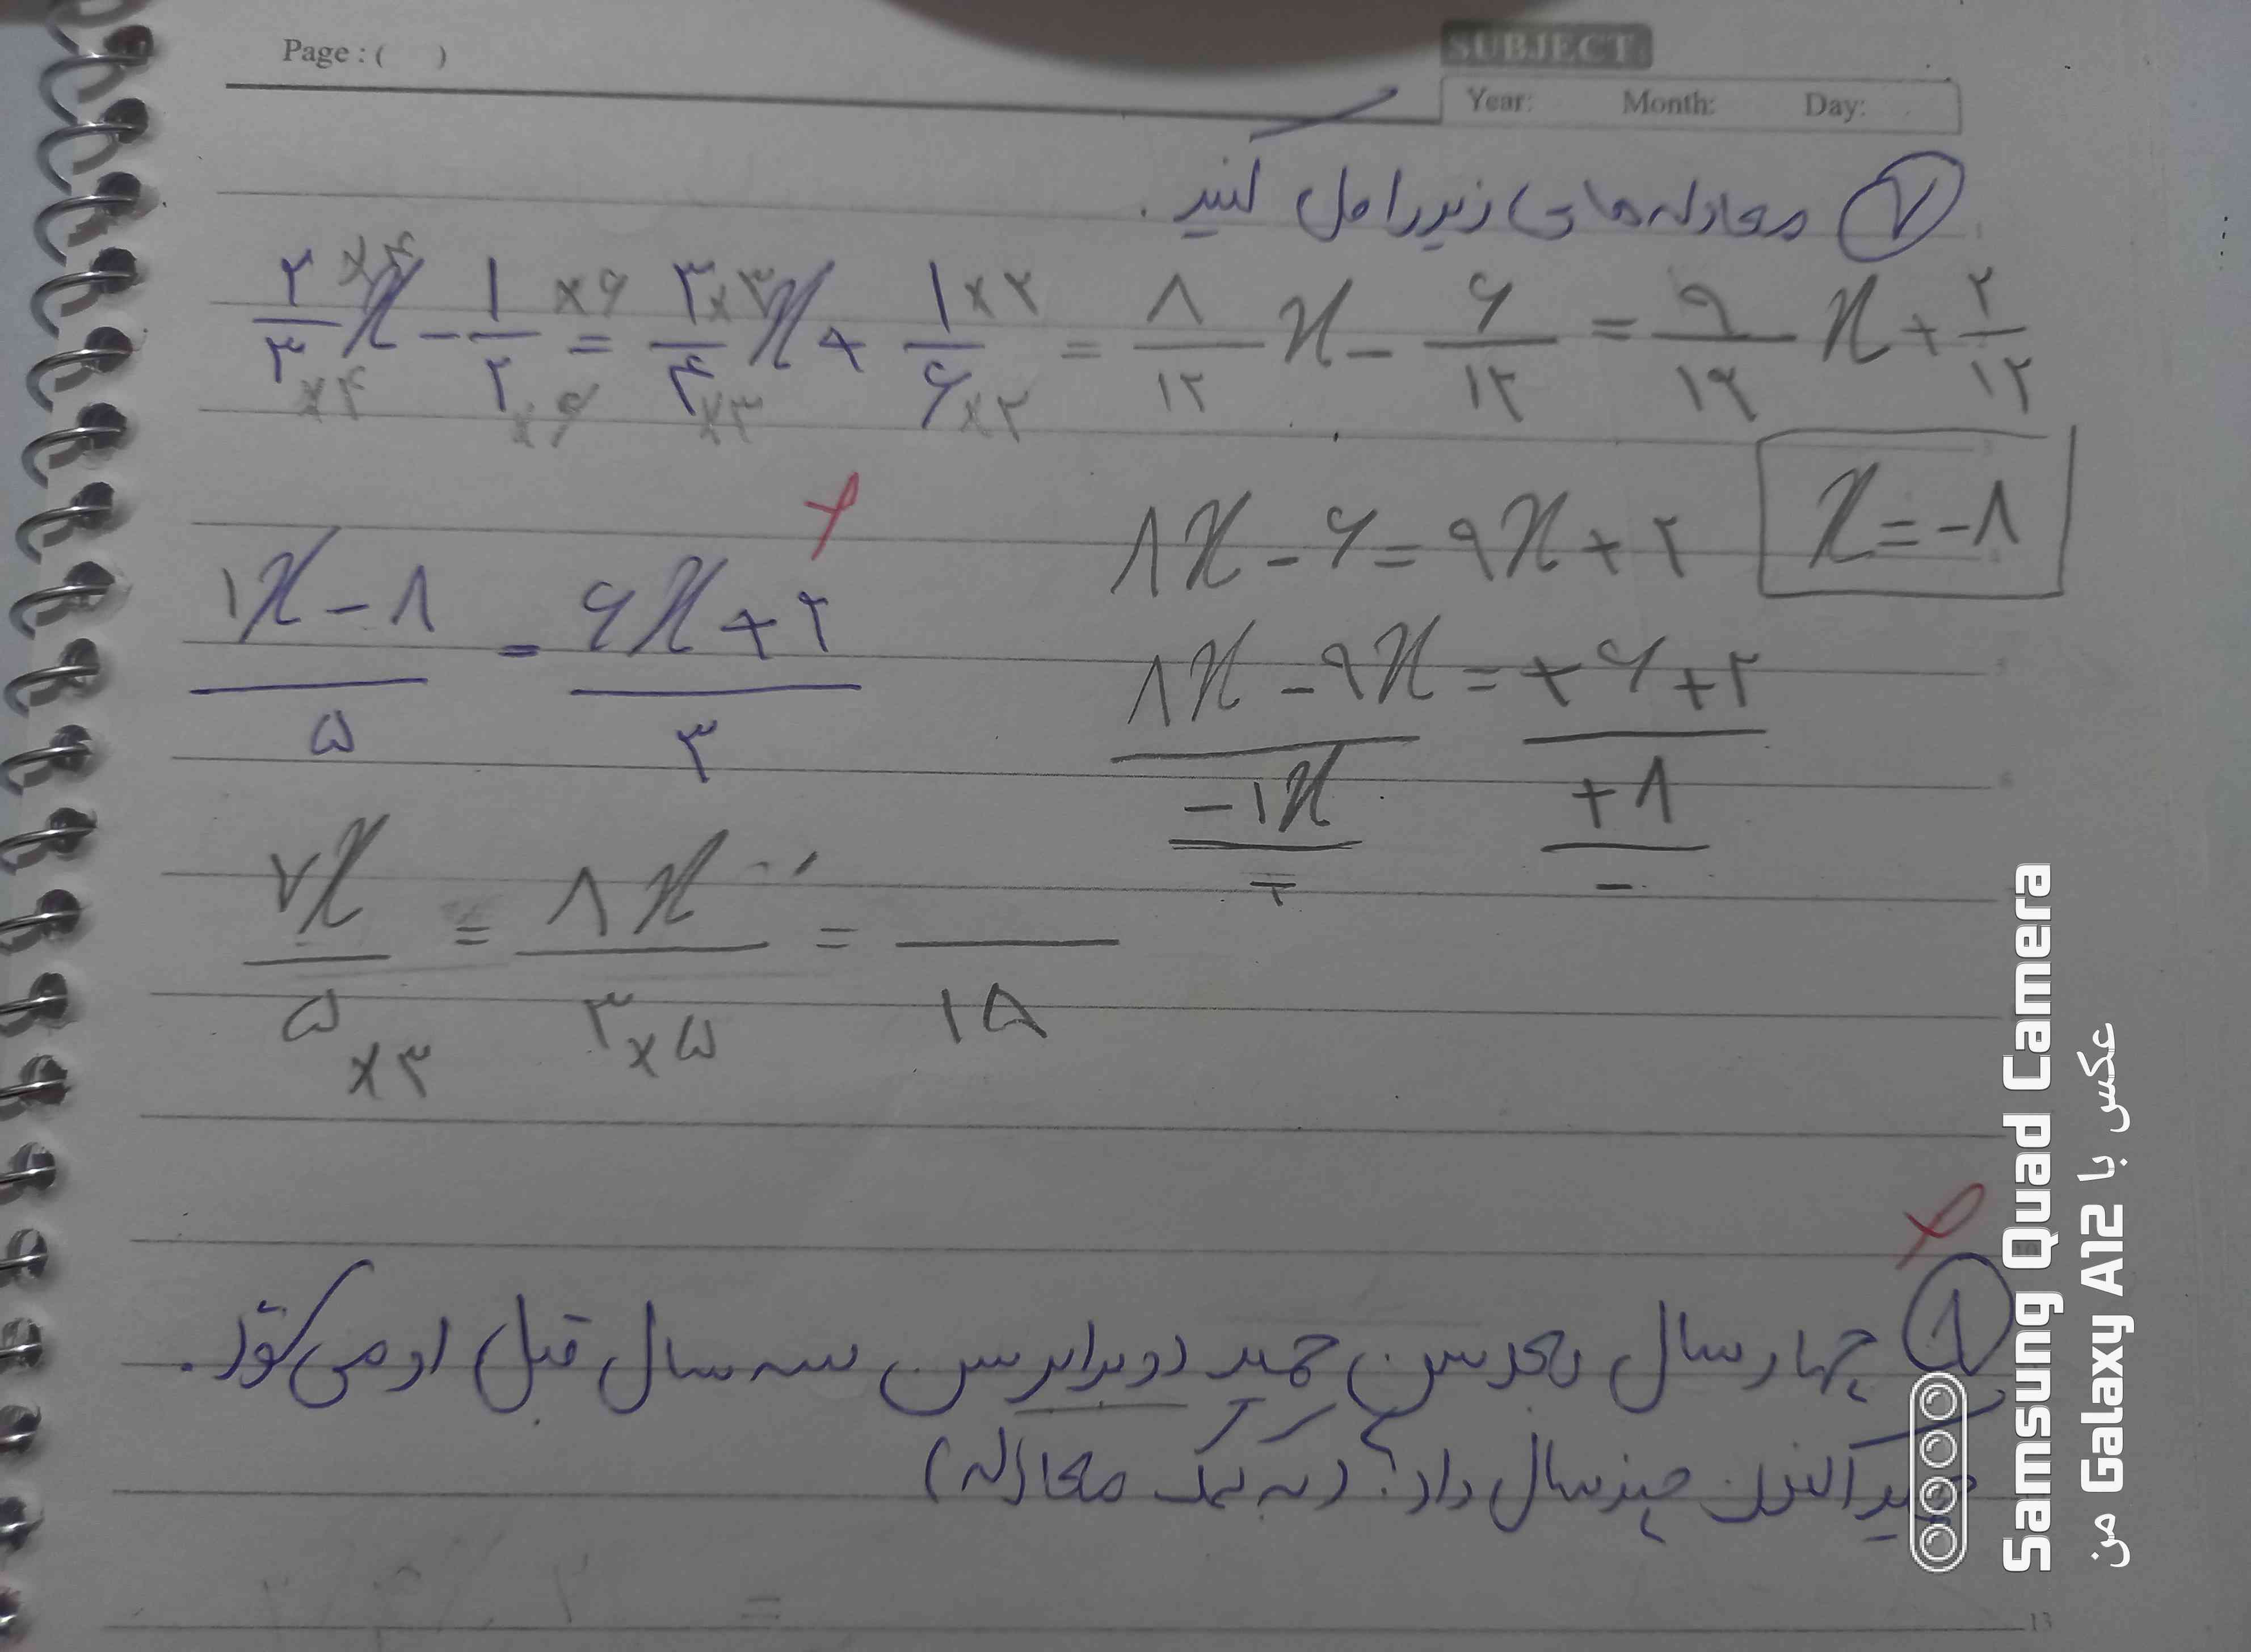 Page : ( )
SUBJECT:
Year: Month: Day:
۷ معادله های زیر را حل کنید .
۲×۴/۳×۴ x - ۱×۶/۲×۶ = ۳×۳/۴×۳ x + ۱×۲/۶×۲ = ۸/۱۲ x - ۶/۱۲ = ۹/۱۲ x + ۲/۱۲
۸x - ۶ = ۹x + ۲
x = -۸
۸x - ۹x = +۶ + ۲
-۱x +۸
- -
۱x - ۸/۵ = ۶x + ۲/۳
۷x/۵×۳ = ۸x/۳×۵ = /۱۵
۸ چهار سال بعد سن حمید دو برابر سن سه سال قبل او می شود .
حمید اکنون چند سال دارد؟ (به کمک معادله)
=
13
Samsung Quad Camera
عکس با Galaxy A12 من